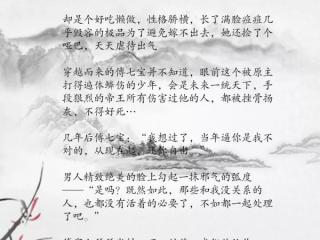 却是个好吃懒做，性格骄横，长了满脸痘痘几
乎毁容的极品为了避免嫁不出去，她还捡了个
哑巴，天天虐待出气
穿越而来的傅七宝并不知道，眼前这个被原主
打得遍体鳞伤的少年，会是未来一统天下，手
段狠烈的帝王所有伤害过他的人，都被挫骨扬
灰，不得好死…
几年后傅七宝：“我想过了，当年逼你是我不
对的，从现在起，还你自由。”
男人精致绝美的脸上勾起一抹邪气的弧度
——“是吗？既然如此，那些和我没关系的
人，也都没有活着的必要了，不如都一起处理
了吧。”